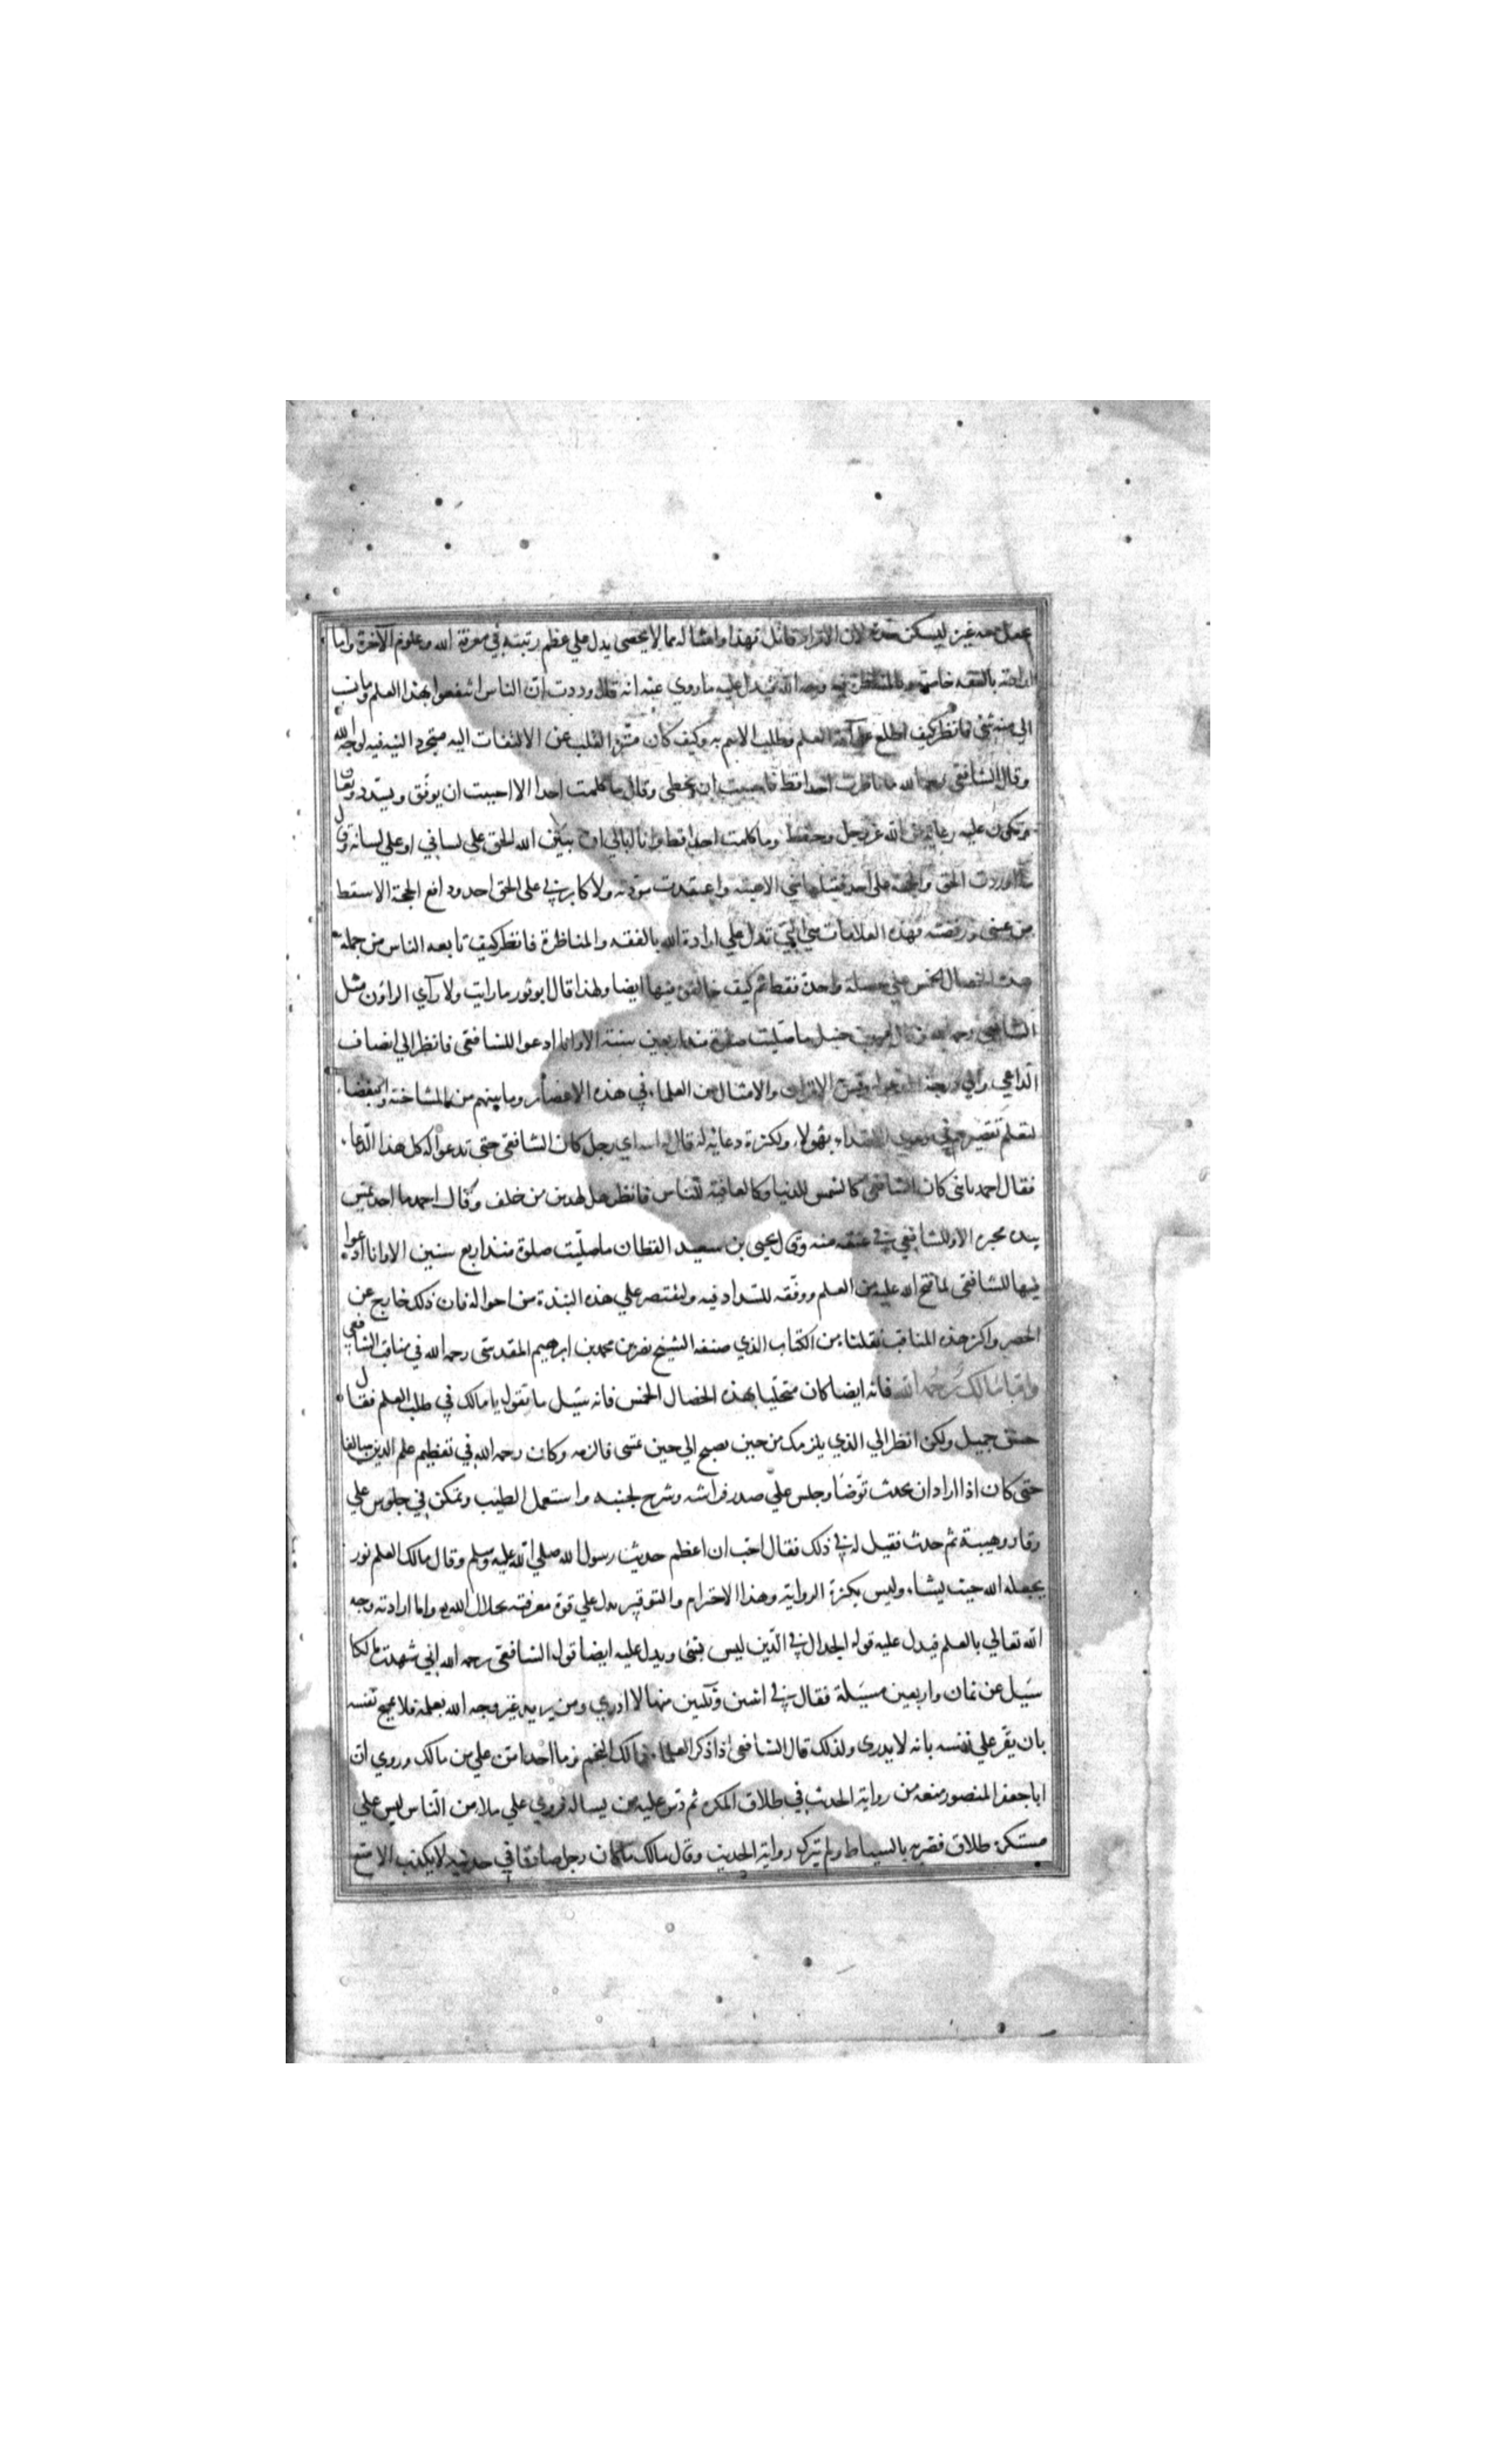 عمل معه غيره ليسكن لان الاقرار قاتل فهذا وامثاله مما لا يحصى يدل علي عظم رتبته في معرفة الله وعلوم الآخرة واما
ارادته بالفقه خاصة والمناظرة فيه وجه الله فيدل عليه ما روي عنه انه قال وددت ان الناس انتفعوا بهذا العلم وما نسب
الي منه شئ فانظر كيف اطلع علي آفة العلم وطلب الاسم به وكيف كان منزه القلب عن الالتفات اليه متجرد النية فيه لوجه الله
وقال الشافعي رحمه الله ما ناظرت احدا قط فاحببت ان يخطي وقال ما كلمت احدا الا احببت ان يوفق ويسدد ويعان
وتكون عليه رعاية من الله عز وجل وحفظ وما كلمت احدا قط وانا ابالي ان يبين الله الحق علي لساني او علي لسانه وقال
ما اوردت الحق والحجة علي احد فقبلها مني الا هبته واعتقدت مودته ولا كابرني علي الحق احد ودافع الحجة الا سقط
من عيني ورفضته فهذه العلامات هي التي تدل علي ارادة الله بالفقه والمناظرة فانظر كيف تابعه الناس من جملة
هذه الخصال الخمس علي خصلة واحدة فقط ثم كيف خالفوه فيها ايضا ولهذا قال ابو ثور ما رايت ولا رآي الراؤن مثل
الشافعي رحمه الله وقال احمد بن حنبل ما صليت صلوة منذ اربعين سنة الا وانا ادعوا للشافعي فانظر الي انصاف
الداعي والي درجة المدعو له وقس الاقران والامثال من العلماء في هذه الاعصار وما بينهم من المشاحنة والبغضاء
لتعلم تقصيرهم في دعوي الاقتداء بهولاء ولكثرة دعائه له قال له ابنه اي رجل كان الشافعي حتى تدعوا له كل هذا الدعاء
فقال احمد يا بني كان الشافعي كالشمس للدنيا وكالعافية للناس فانظر هل لهذين من خلف وكان احمد ما احد يمس
بيده محبرة الا وللشافعي في عنقه منه وقال يحيى بن سعيد القطان ما صليت صلوة منذ اربع سنين الا وانا ادعوا
فيها للشافعي لما فتح الله عليه من العلم ووفقه للسداد فيه ولنقتصر علي هذه النبذة من احواله فان ذلك خارج عن
الحصر واكثر هذه المناقب نقلناه من الكتاب الذي صنفه الشيخ نصر بن محمد بن ابرهيم المقدسي رحمه الله في مناقب الشافعي
واما مالك رحمه الله فانه ايضا كان متحليا بهذه الخصال الخمس فانه سيل ما تقول يا مالك في طلب العلم فقال
حسن جميل ولكن انظر الي الذي يلزمك من حين يصبح الي حين تمسي فالزمه وكان رحمه الله في تعظيم علم الدين مبالغا
حتى كان اذا اراد ان يحدث توضا وجلس علي صدر فراشه وسرح لحيته واستعمل الطيب وتمكن في جلوس علي
وقار وهيبة ثم حدث فقيل له في ذلك فقال احب ان اعظم حديث رسول الله صلي الله عليه وسلم وقال مالك العلم نور
يجعله الله حيث يشاء وليس بكثرة الرواية وهذا الاحترام والتوقير يدل علي قوة معرفته بجلال الله واما ارادته وجه
الله تعالي بالعلم فيدل عليه قوله الجدال في الدين ليس بشئ ويدل عليه ايضا قول الشافعي رحمه الله اني شهدت مالكا
سيل عن ثمان واربعين مسيلة فقال في اثنين وثلثين منها لا ادري ومن يريد غير وجه الله بعلمه فلا تسمح نفسه
بان يقر علي نفسه بانه لا يدري ولذلك قال الشافعي اذا ذكر العلماء فمالك النجم وما احد امن علي من مالك وروي ان
ابا جعفر المنصور منعه من رواية الحديث في طلاق المكره ثم دس عليه من يساله فروي علي ملاء من الناس ليس علي
مستكره طلاق فضربه بالسياط ولم يترك رواية الحديث وقال مالك ما كان رجل صادقا في حديثه لا يكذب الا متع